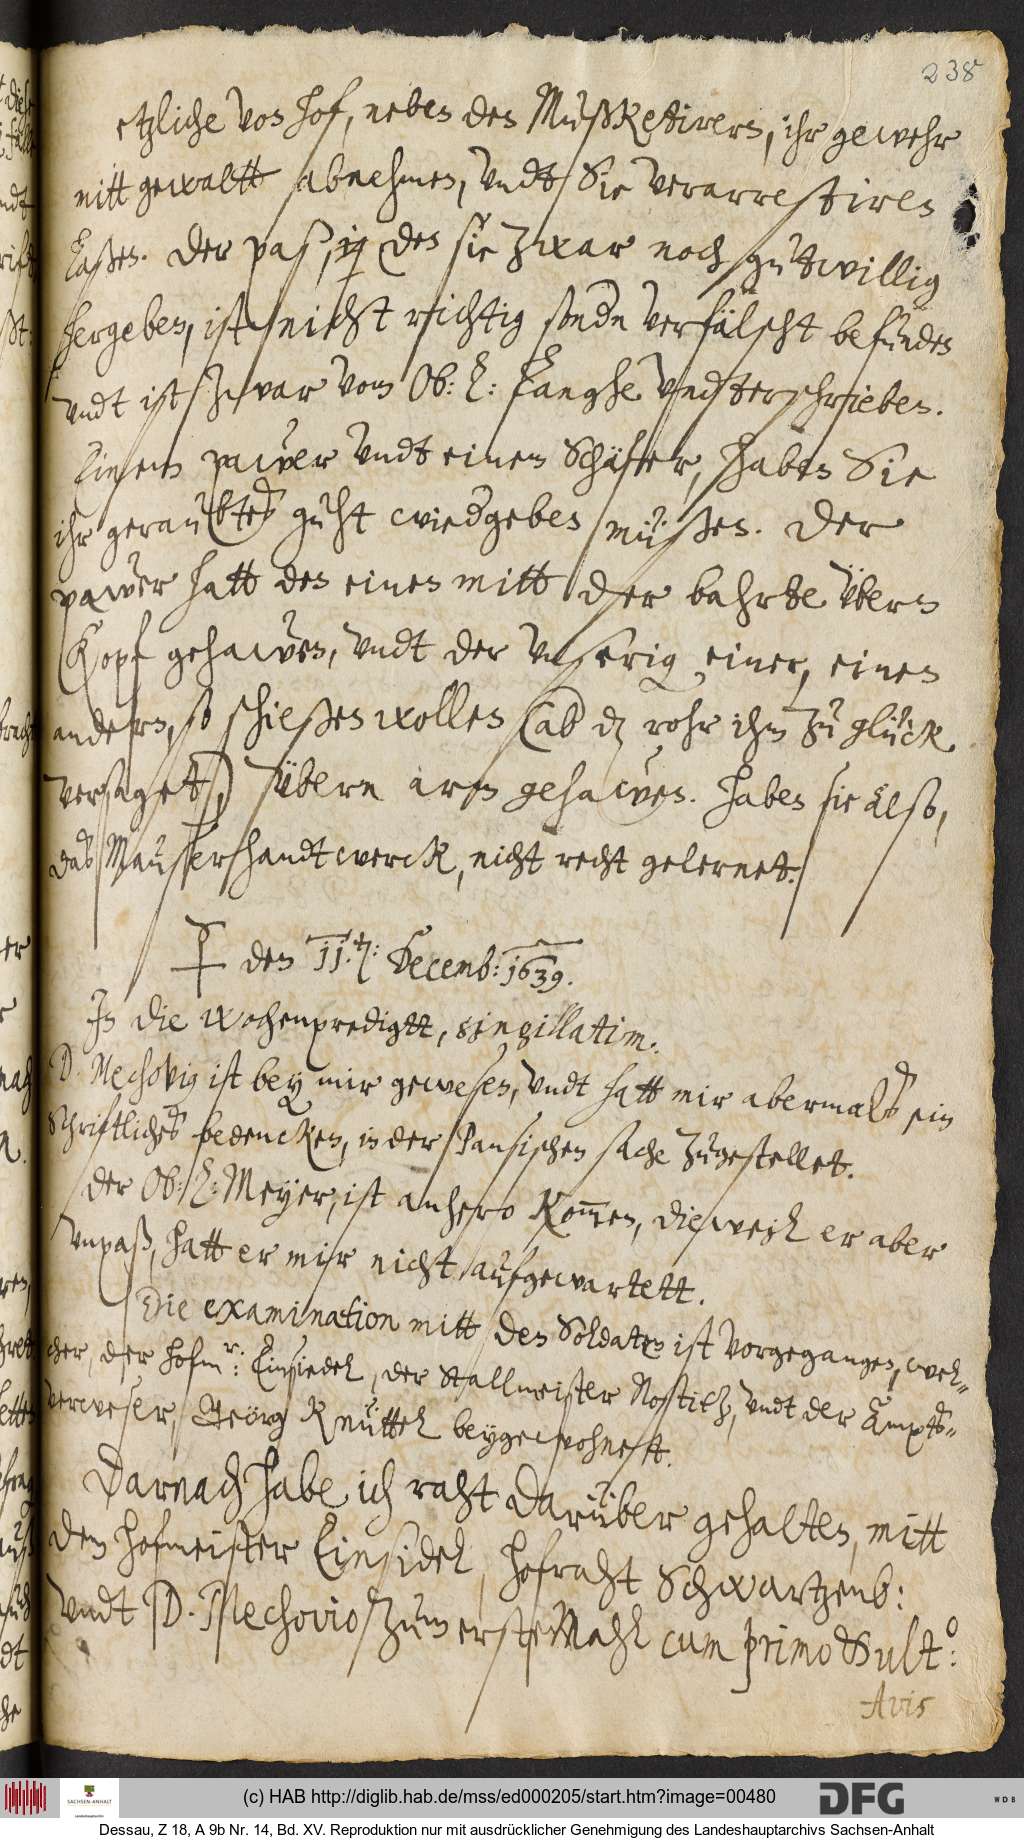 238
etzliche von hof, neben den Mußketirern, ihr gewehr
mitt gewaltt abnehmen, undt Sie verarrestiren
laßen. Der paß, den sie zwar noch gutwillig
hergeben, ist nicht richtig sondn verfälscht befunden
undt ist zwar vom Ob: L: Langhe unterschrieben.
Einem pawer undt einem Schäfer, haben Sie
ihr geraubtes guht wiedgeben müßen. Der
pawer hatt den einen mitt der bahrte übern
Kopf gehawen, undt der unserig einer, einen
andern, so schießen wollen (ab dz rohr ihm zu glück
versaget,) übern arm gehawen. Haben sie also,
das Mauserhandtwerck, nicht recht gelernet.
den 11. t: Decemb: 1639.
In die wochenpredigtt, singillatim.
D. Mechovig ist bey mir gewesen, undt hatt mir abermals ein
Schriftliches bedencken, in der Pansischen sache zugestellet.
Der Ob: L: Meyer, ist anhero kommen, dieweil er aber
unpaß, hatt er mir nicht aufgewartett.
Die examination mitt den Soldaten ist vorgegangen, wel-
cher, der hofmr: Einsiedel, der Stallmeister Nostitz, undt der Ampts-
verweser, Geörg Knüttel beygewohnett.
Darnach habe ich raht darüber gehalten, mitt
dem hofmeister Einsidel, hofraht Schwartzenb:
undt D. Mechovio zum ersten Mahl cum primo Sult:o
Avis
(c) HAB http://diglib.hab.de/mss/ed000205/start.htm?image=00480
SACHSEN-ANHALT
DFG
WDB
Dessau, Z 18, A 9b Nr. 14, Bd. XV. Reproduktion nur mit ausdrücklicher Genehmigung des Landeshauptarchivs Sachsen-Anhalt